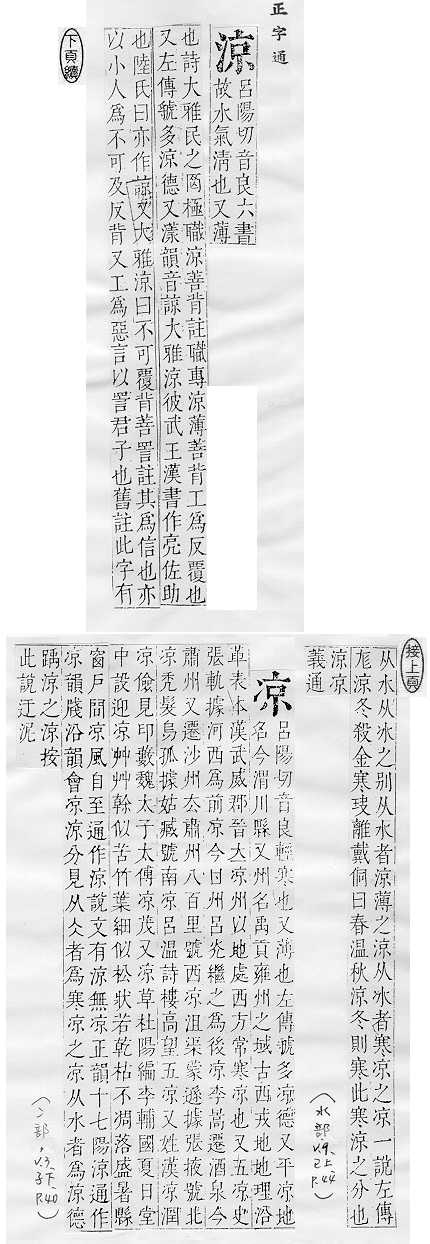 正字通
涼
呂陽切音良六書
故水氣清也又薄
也詩大雅民之罔極職涼善背註職專涼薄善背工為反覆也
又左傳虢多涼德又漾韻音諒大雅涼彼武王漢書作亮佐助
也陸氏曰亦作諒又大雅涼曰不可覆背善詈註其為信也亦
以小人為不可及反背又工為惡言以詈君子也舊註此字有
下頁續
接上頁
从水从冰之別从水者涼薄之涼从冰者寒涼之凉一說左傳
尨涼冬殺金寒玦離戴侗曰春溫秋涼冬則寒此寒涼之分也
涼凉
義通
(水部, V.9, 巳上, P.44)
凉
呂陽切音良輕寒也又薄也左傳虢多凉德又平凉地
名今渭川縣又州名禹貢雍州之域古西戎地地理沿
革表本漢武威郡晉大凉州以地處西方常寒凉也又五凉史
張軌據河西為前凉今甘州呂光繼之為後凉李暠遷酒泉今
肅州又遷沙州去肅州八百里號西凉沮渠蒙遜據張掖號北
凉禿髮烏孤據姑臧號南凉呂溫詩樓高望五凉又姓漢凉潤
凉儉見印藪魏太子太傅凉茂又凉草杜陽編李輔國夏日堂
中設迎凉艸艸幹似苦竹葉細似松狀若乾枯不凋落盛暑縣
窗戶間凉風自至通作涼說文有涼無凉正韻十七陽涼通作
凉韻牋沿韻會凉涼分見从仌者為寒凉之凉从水者為涼德
踽涼之涼按
此說迂泥
(冫部, V.3, 子下, P.40)